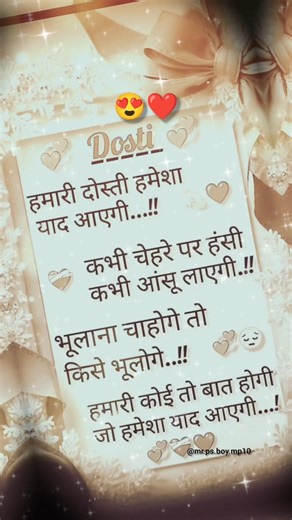 Dosti
हमारी दोस्ती हमेशा
याद आएगी...!!
कभी चेहरे पर हंसी
कभी आंसू लाएगी.!!
भूलाना चाहोगे तो
किसे भूलोगे..!!
हमारी कोई तो बात होगी
जो हमेशा याद आएगी...!
@mr.ps.boy.mp10